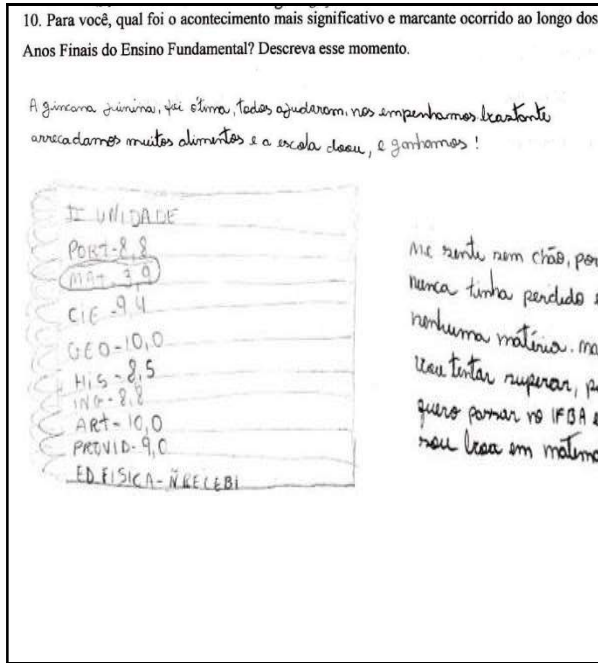 10. Para você, qual foi o acontecimento mais significativo e marcante ocorrido ao longo dos
Anos Finais do Ensino Fundamental? Descreva esse momento.
A gincana junina, foi ótima, todos ajudaram, nos empenhamos bastante
arrecadamos muitos alimentos e a escola doou, e ganhamos!
II UNIDADE
PORT-8,8
MAT-3,9
CIE-9,4
GEO-10,0
HIS-8,5
ING-8,8
ART-10,0
PROVID-9,0
ED.FISICA-Ñ RECEBI
Me senti sem chão, por
nunca tinha perdido
nenhuma matéria. ma
vou tentar superar, p
quero passar no IFBA e
sou boa em matemá